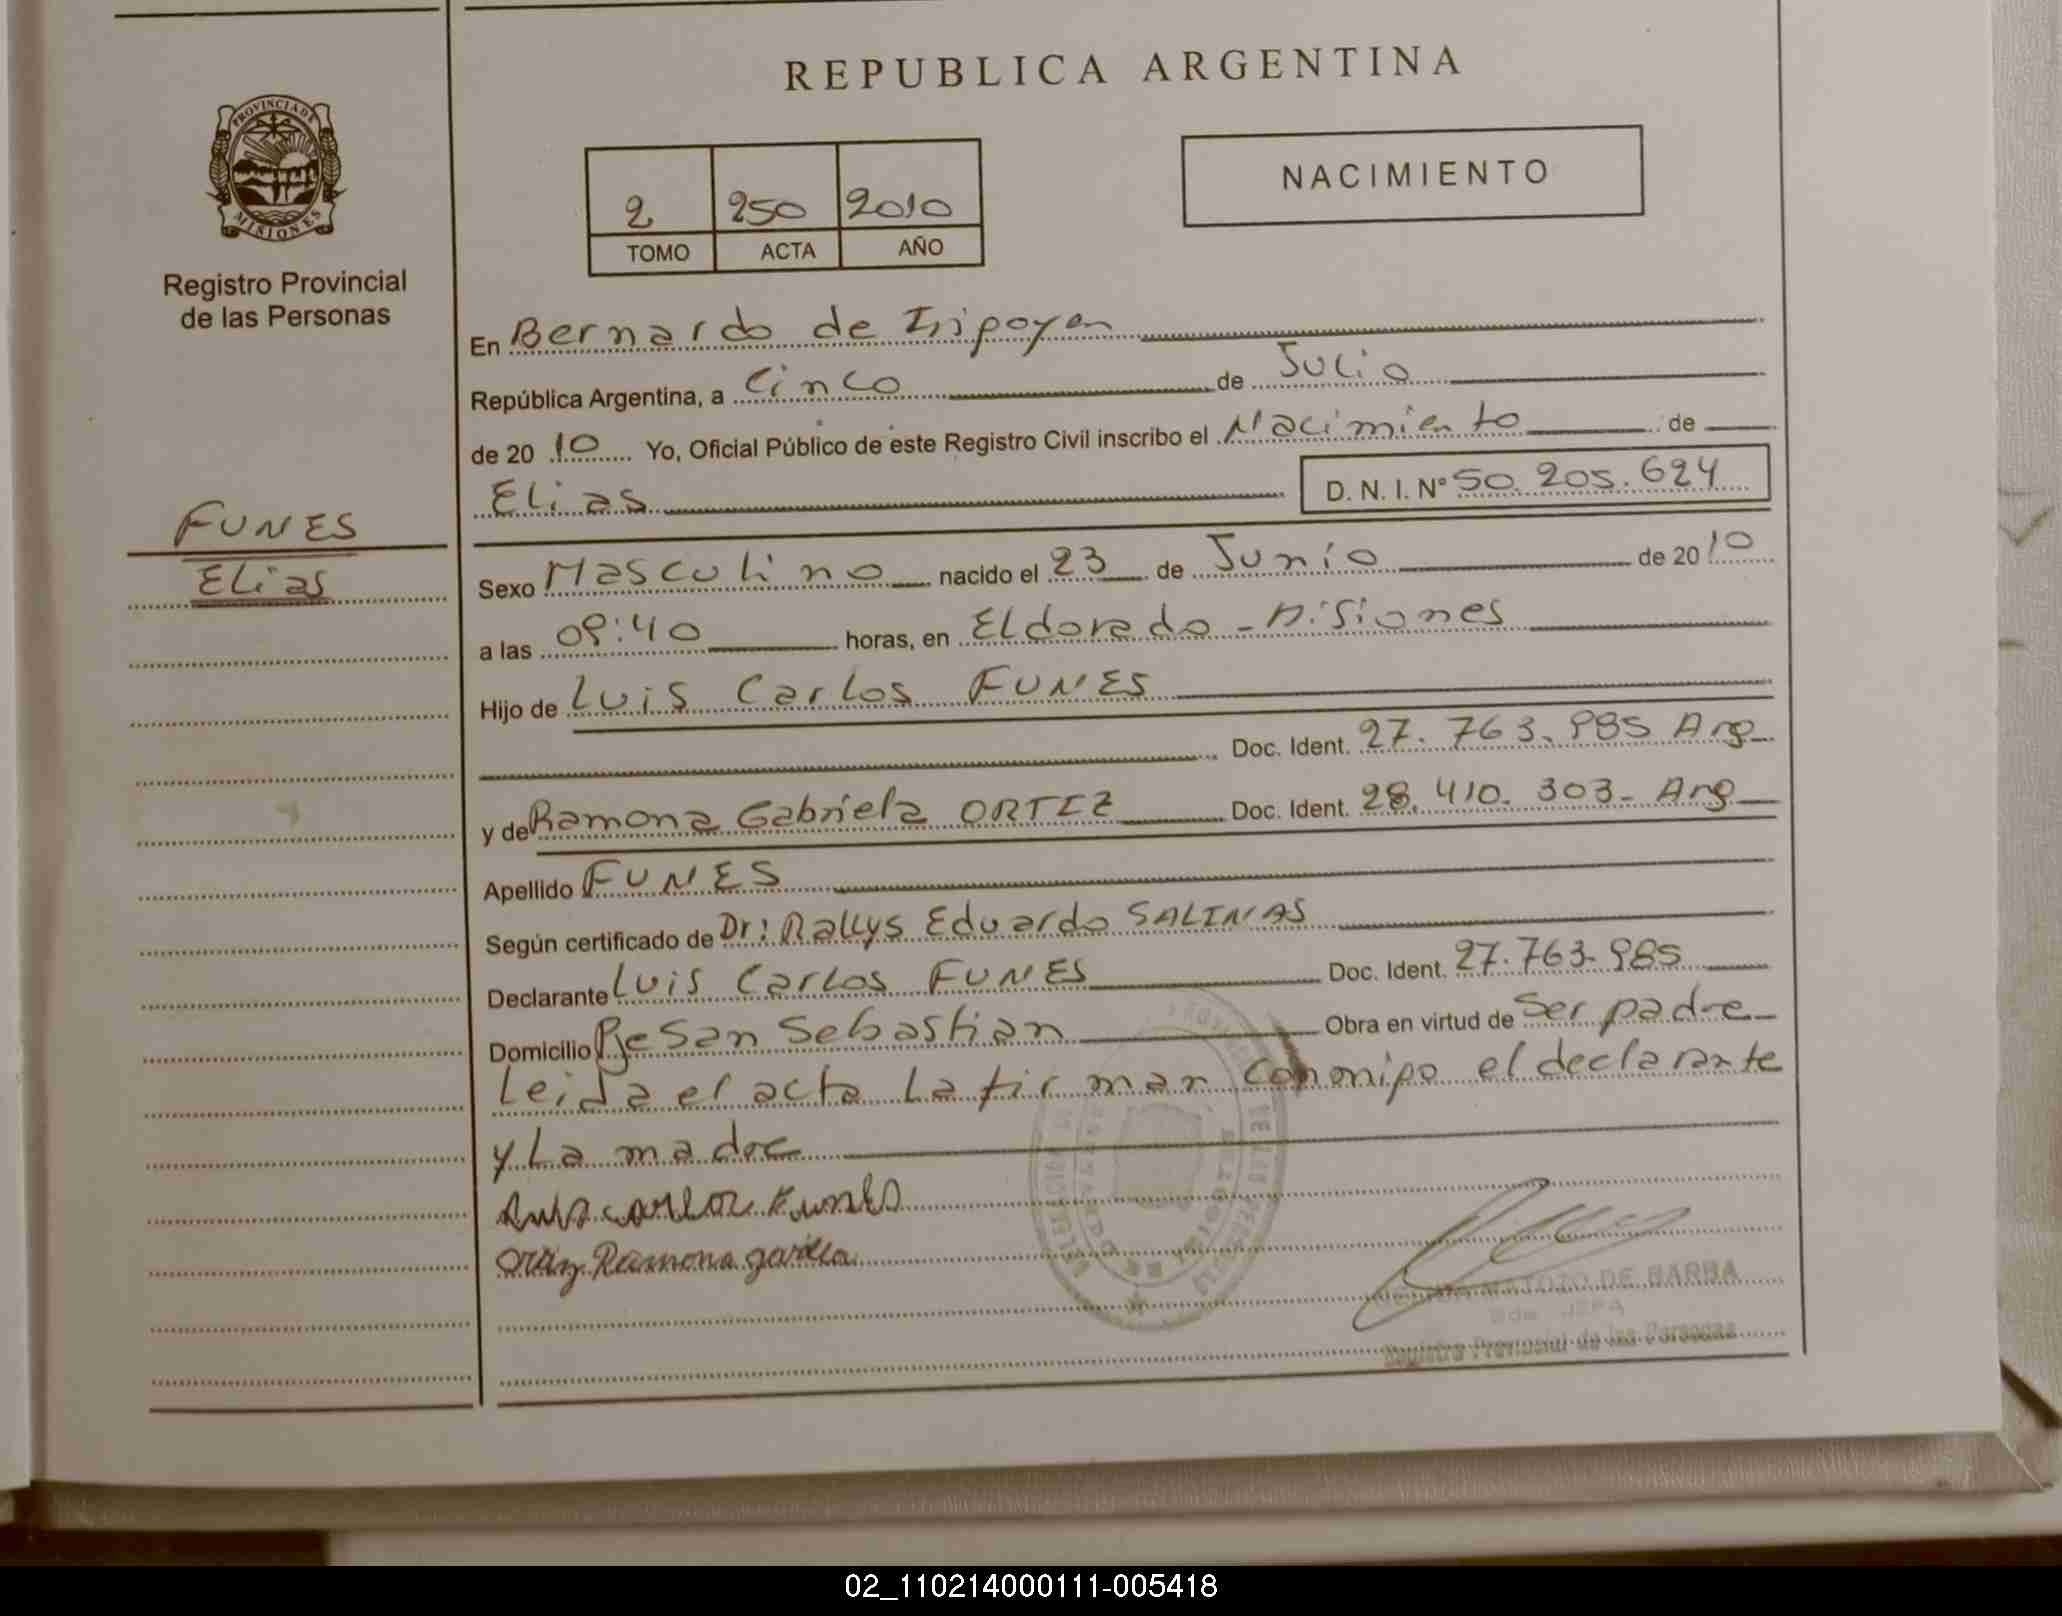 REPUBLICA ARGENTINA
PROVINCIA DE
MISIONES
Registro Provincial
de las Personas
NACIMIENTO
2 250 2010
TOMO ACTA AÑO
En Bernardo de Irigoyen
República Argentina, a Cinco de Julio
de 20 10 Yo, Oficial Público de este Registro Civil inscribo el Nacimiento de
Elias D. N. I. Nº 50.205.624
FUNES
Elias
Sexo Masculino nacido el 23 de Junio de 20 10
a las 09:40 horas, en Eldorado - Misiones
Hijo de Luis Carlos FUNES
Doc. Ident. 27.763.985 Arg
y de Ramona Gabriela ORTIZ Doc. Ident. 28.410.303 - Arg
Apellido FUNES
Según certificado de Dr: Rallys Eduardo SALINAS
Declarante Luis Carlos FUNES Doc. Ident. 27.763.985
Domicilio Pje San Sebastian Obra en virtud de Ser padre
Leida el acta La firman Conmigo el declarante
y La madre
Luis carlos Funes
Ortiz Ramona
MATOZO DE BARBA
JEFA
Registro Provincial de las Personas
02_110214000111-005418